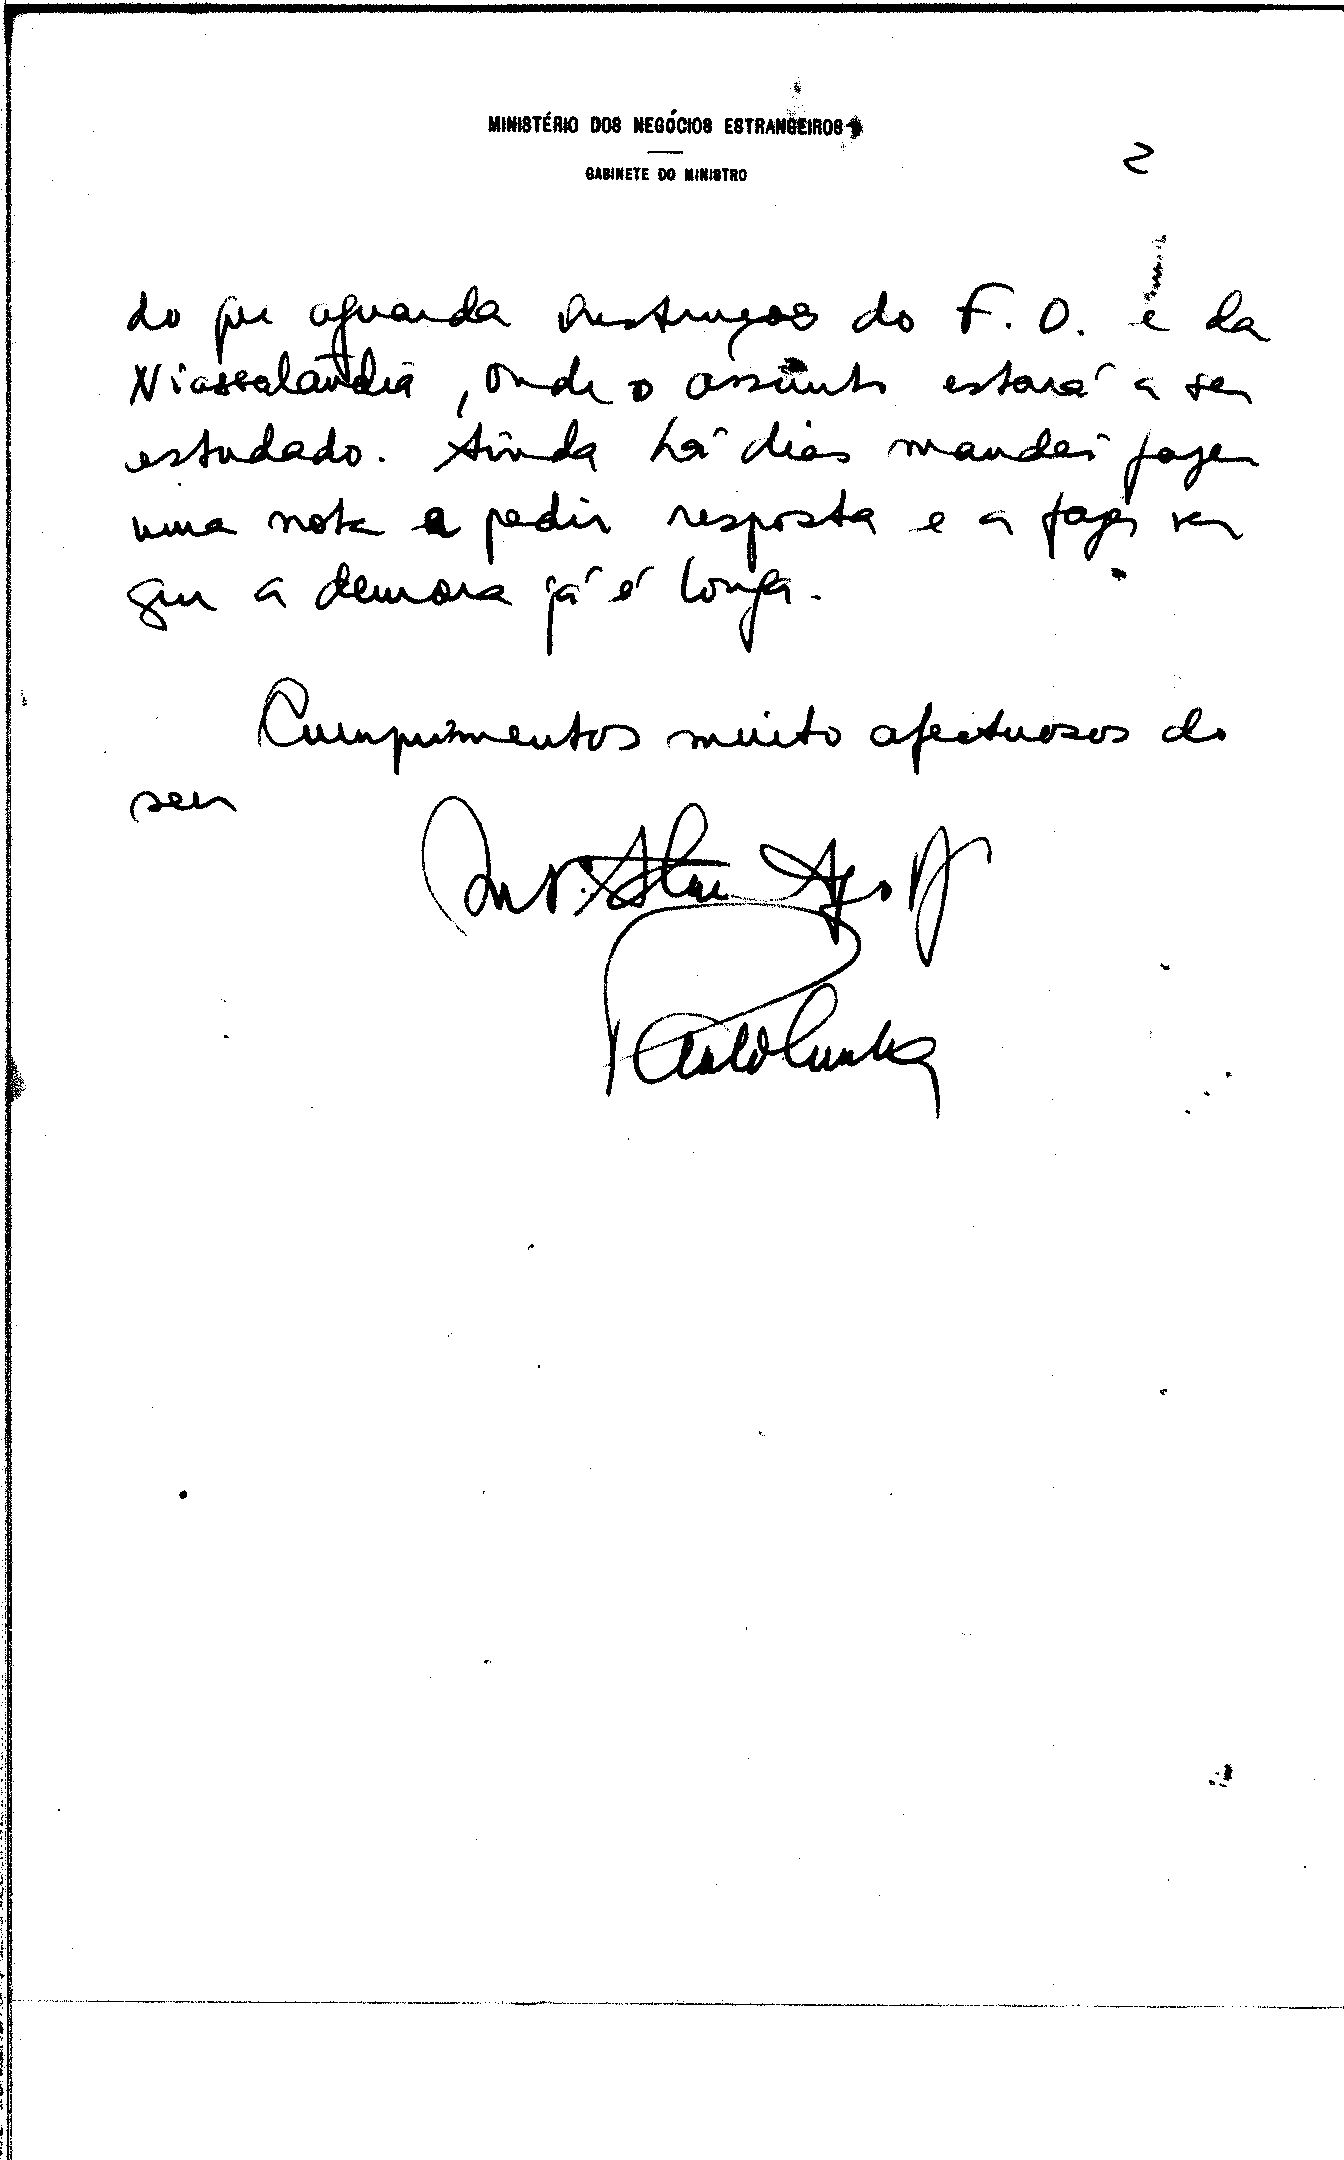 MINISTÉRIO DOS NEGÓCIOS ESTRANGEIROS
GABINETE DO MINISTRO
2
do que aguarda instruções do F. O. e da
Niassalândia, onde o assunto estará a ser
estudado. Ainda há dias mandei fazer
uma nota a pedir resposta e a fazer ver
que a demora já é longa.
Cumprimentos muito afectuosos do
seu
Paulo Cunha